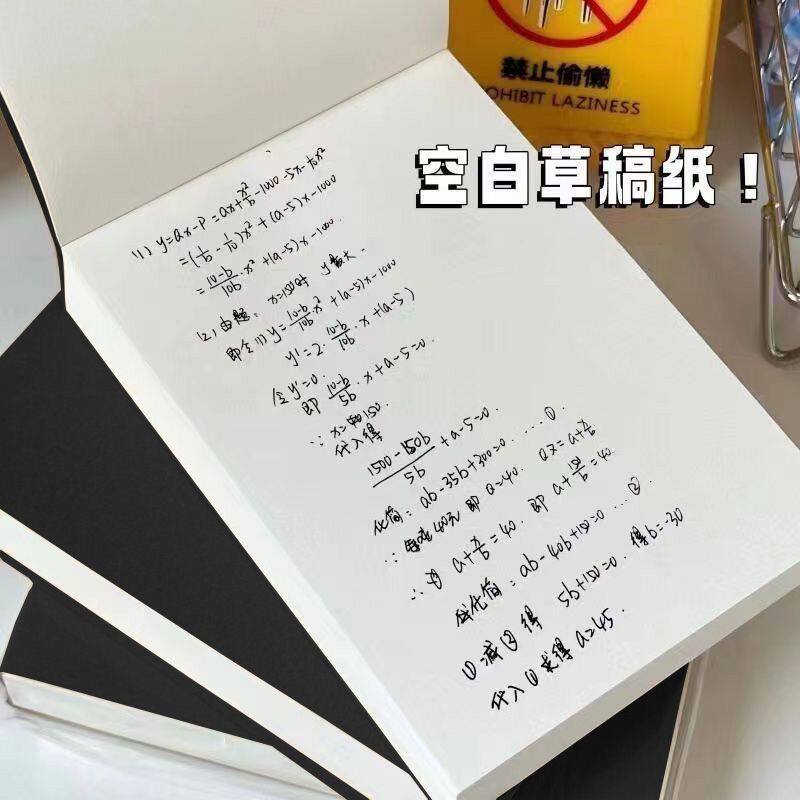 禁止偷懒
OHIBIT LAZINESS
空白草稿纸！
(1) y=ax-p=ax+x²/b-1000-5x-1/10x²
=(1/b-1/10)x²+(a-5)x-1000
=10-b/10b·x²+(a-5)x-1000.
(2) 由题： x=150时 y最大.
即令(1) y=10-b/10b x²+(a-5)x-1000
y'=2·10-b/10b·x+(a-5)
令y'=0.
即 10-b/5b·x+a-5=0.
∵ x=150
代入得
1500-150b/5b+a-5=0.
化简： ab-35b+300=0. ……①.
∵ 40元 即 Q=40. Q=a+x/b
∴ a+x/b=40. 即 a+150/b=40.
化简： ab-40b+150=0 …②
①减②得 5b+150=0. 得b=-30
代入①求得 a=45.